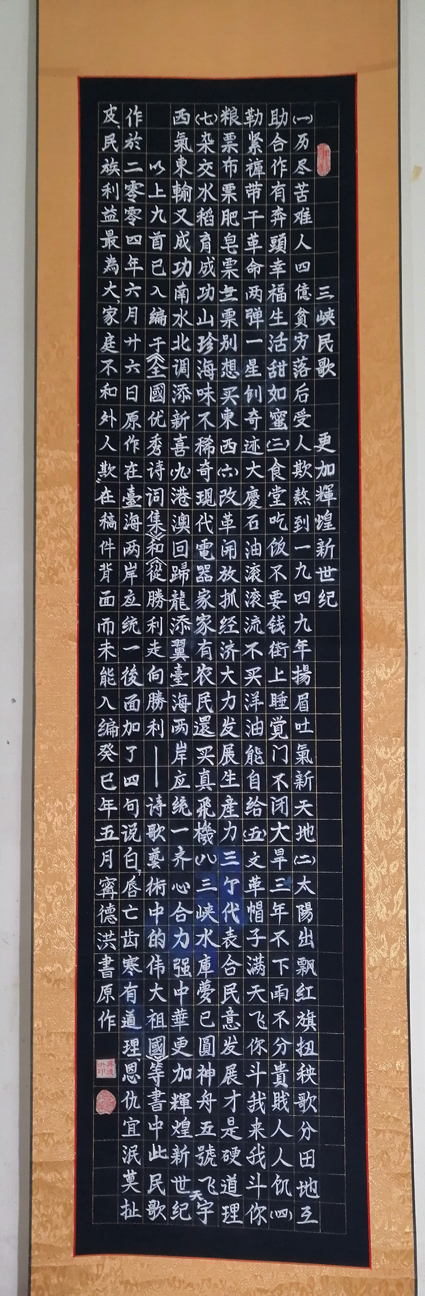 三峡民歌　更加輝煌新世纪
㈠历尽苦难人四億貧穷落后受人欺熬到一九四九年揚眉吐氣新天地㈡太陽出飘红旗扭秧歌分田地互
助合作有奔頭幸福生活甜如蜜㈢食堂吃飯不要钱街上睡觉门不闭大旱三年不下雨不分貴賎人人饥㈣
勒紧裤带干革命两弹一星創奇迹大慶石油滚滚流不买洋油能自给㈤文革帽子满天飞你斗我来我斗你
粮票布票肥皂票无票别想买東西㈥改革開放抓经济大力发展生産力三个代表合民意发展才是硬道理
㈦杂交水稻育成功山珍海味不稀奇現代電器家家有农民還买真飛機㈧三峡水庫夢已圓神舟五號飞天宇
西氣東輸又成功南水北调添新喜㈨港澳回歸龍添翼臺海两岸应统一齐心合力强中華更加輝煌新世纪
以上九首已入编于《全國优秀诗词集》和《從勝利走向勝利——诗歌藝術中的伟大祖國》等書中此民歌
作於二零零四年六月廿六日原作在臺海两岸应统一後面加了四句说白唇亡齿寒有道理恩仇宜泯莫扯
皮民族利益最為大家庭不和外人欺在稿件背面而未能入编癸巳年五月寗德洪書原作